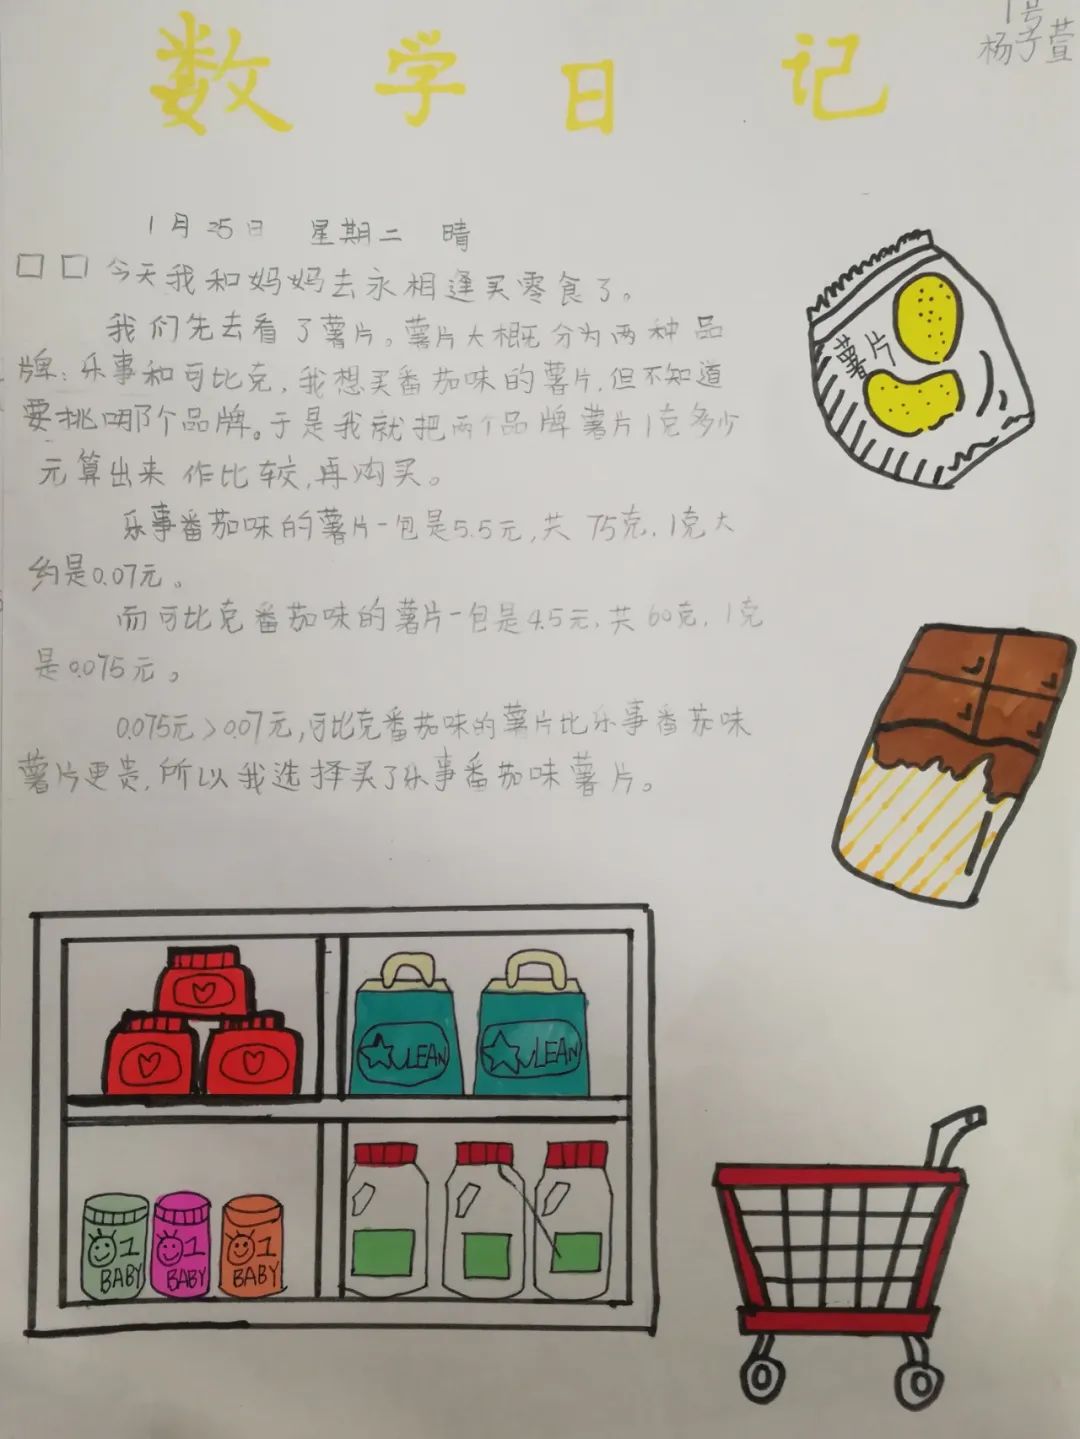 1号
杨子萱
数学日记
1月25日 星期二 晴
今天我和妈妈去永相逢买零食了。
我们先去看了薯片。薯片大概分为两种品
牌：乐事和可比克，我想买番茄味的薯片，但不知道
要挑哪个品牌。于是我就把两个品牌薯片1克多少
元算出来作比较，再购买。
乐事番茄味的薯片一包是5.5元，共75克，1克大
约是0.07元。
而可比克番茄味的薯片一包是4.5元，共60克，1克
是0.075元。
0.075元>0.07元，可比克番茄味的薯片比乐事番茄味
薯片更贵，所以我选择买了乐事番茄味薯片。
薯片
LEAN
LEAN
1
BABY
1
BABY
1
BABY